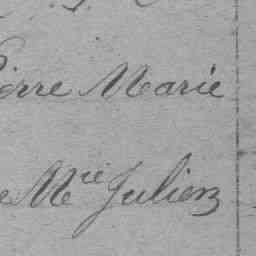 ierre Marie
e Mie Julien